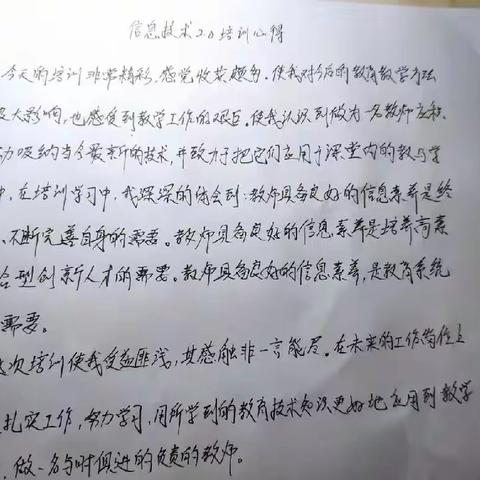 信息技术2.0培训心得
今天的培训非常精彩,感觉收获颇多。使我对今后的教育教学方法
大影响,也感受到教学工作的艰巨。使我认识到做为一名教师应积
力吸纳当今最新的技术,并致力于把它们应用于课堂内的教与学
中,在培训学习中,我深深的体会到:教师具备良好的信息素养是终
、不断完善自身的需要。教师具备良好的信息素养是培养高素
合型创新人才的需要。教师具备良好的信息素养,是教育系统
需要。
次培训使我受益匪浅,其感触非一言能尽。在未来的工作岗位上
扎实工作,努力学习,用所学到的教育技术知识更好地应用到教学
,做一名与时俱进的负责的教师。